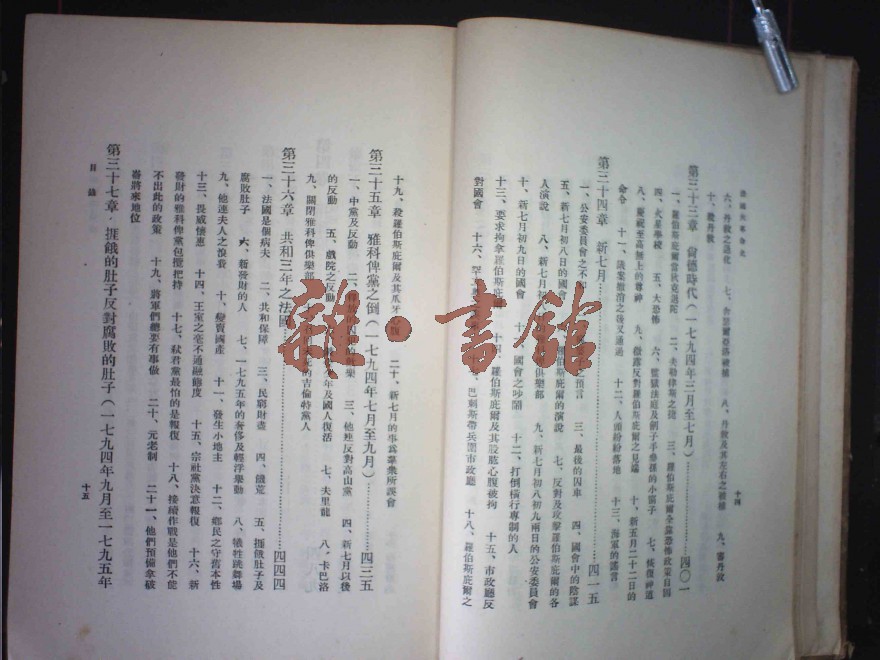 法國大革命史
十四
六、丹敦之惡化 七、 八、丹敦及其左右之被捕 九、審丹敦
十、殺丹敦
第三十三章 尙德時代(一七九四年三月至七月)…………四〇一
一、羅伯斯庇爾當狄克退陀 二、 三、羅伯斯庇爾全靠恐怖政策自固
四、火星學校 五、大恐怖 六、監獄法庭及劊子手 的小 子 七、
八、慶祝至高無上的尊神 九、 反對羅伯斯庇爾之見端 十、新五月二十二日的
命令 十一、議案撤消之後又通過 十二、人頭紛紛落地 十三、海軍的謠言
第三十四章 新七月…………四一五
一、公安委員會之不和 之預言 三、最後的囚車 四、國會中的陰謀
五、新七月初八日的國會 六、羅伯斯庇爾的演說 七、反對及攻擊羅伯斯庇爾的各
人演說 八、新七月初 俱樂部 九、新七月初八初九兩日的公安委員會
十、新七月初九日的國會 十一、國會之吵鬧 十二、打倒橫行專制的人
十三、要求拘拿羅伯斯庇爾 十四、羅伯斯庇爾及其股肱心腹被拘 十五、市政廳反
對國會 十六、 十七、巴剌斯帶兵圍市政廳 十八、羅伯斯庇爾之
十九、殺羅伯斯庇爾及其爪牙 二十、新七月的事爲羣衆所誤會
第三十五章 雅科俾黨之倒(一七九四年七月至九月)…………四三五
一、中黨及反動 二、 三、他連反對高山黨 四、新七月以後
的反動 五、戲院之反動 年及國人復活 七、夫里龍 八、卡巴洛
九、關閉雅科俾俱樂部 十、 的吉倫特黨人
第三十六章 共和三年之法國…………四四四
一、法國是個病夫 二、共和保障 三、民窮財盡 四、饑荒 五、捱餓肚子及
腐敗肚子 六、新發財的人 七、一七九五年的奢侈及輕浮舉動 八、犧牲跳舞場
九、他連夫人之浪費 十、變賣國產 十一、發生小地主 十二、鄉民之守舊本性
十三、畏威懷惠 十四、王家之毫不通融態度 十五、宗社黨決意報復 十六、新
發財的雅科俾黨包攬把持 十七、弒君黨最怕的是報復 十八、接續作戰是他們不能
不出此的政策 十九、將軍們總要有事做 二十、元老制 二十一、他們預備拿破
崙將來地位
第三十七章 捱餓的肚子反對腐敗的肚子(一七九四年九月至一七九五年
目錄
十五
雜·書館